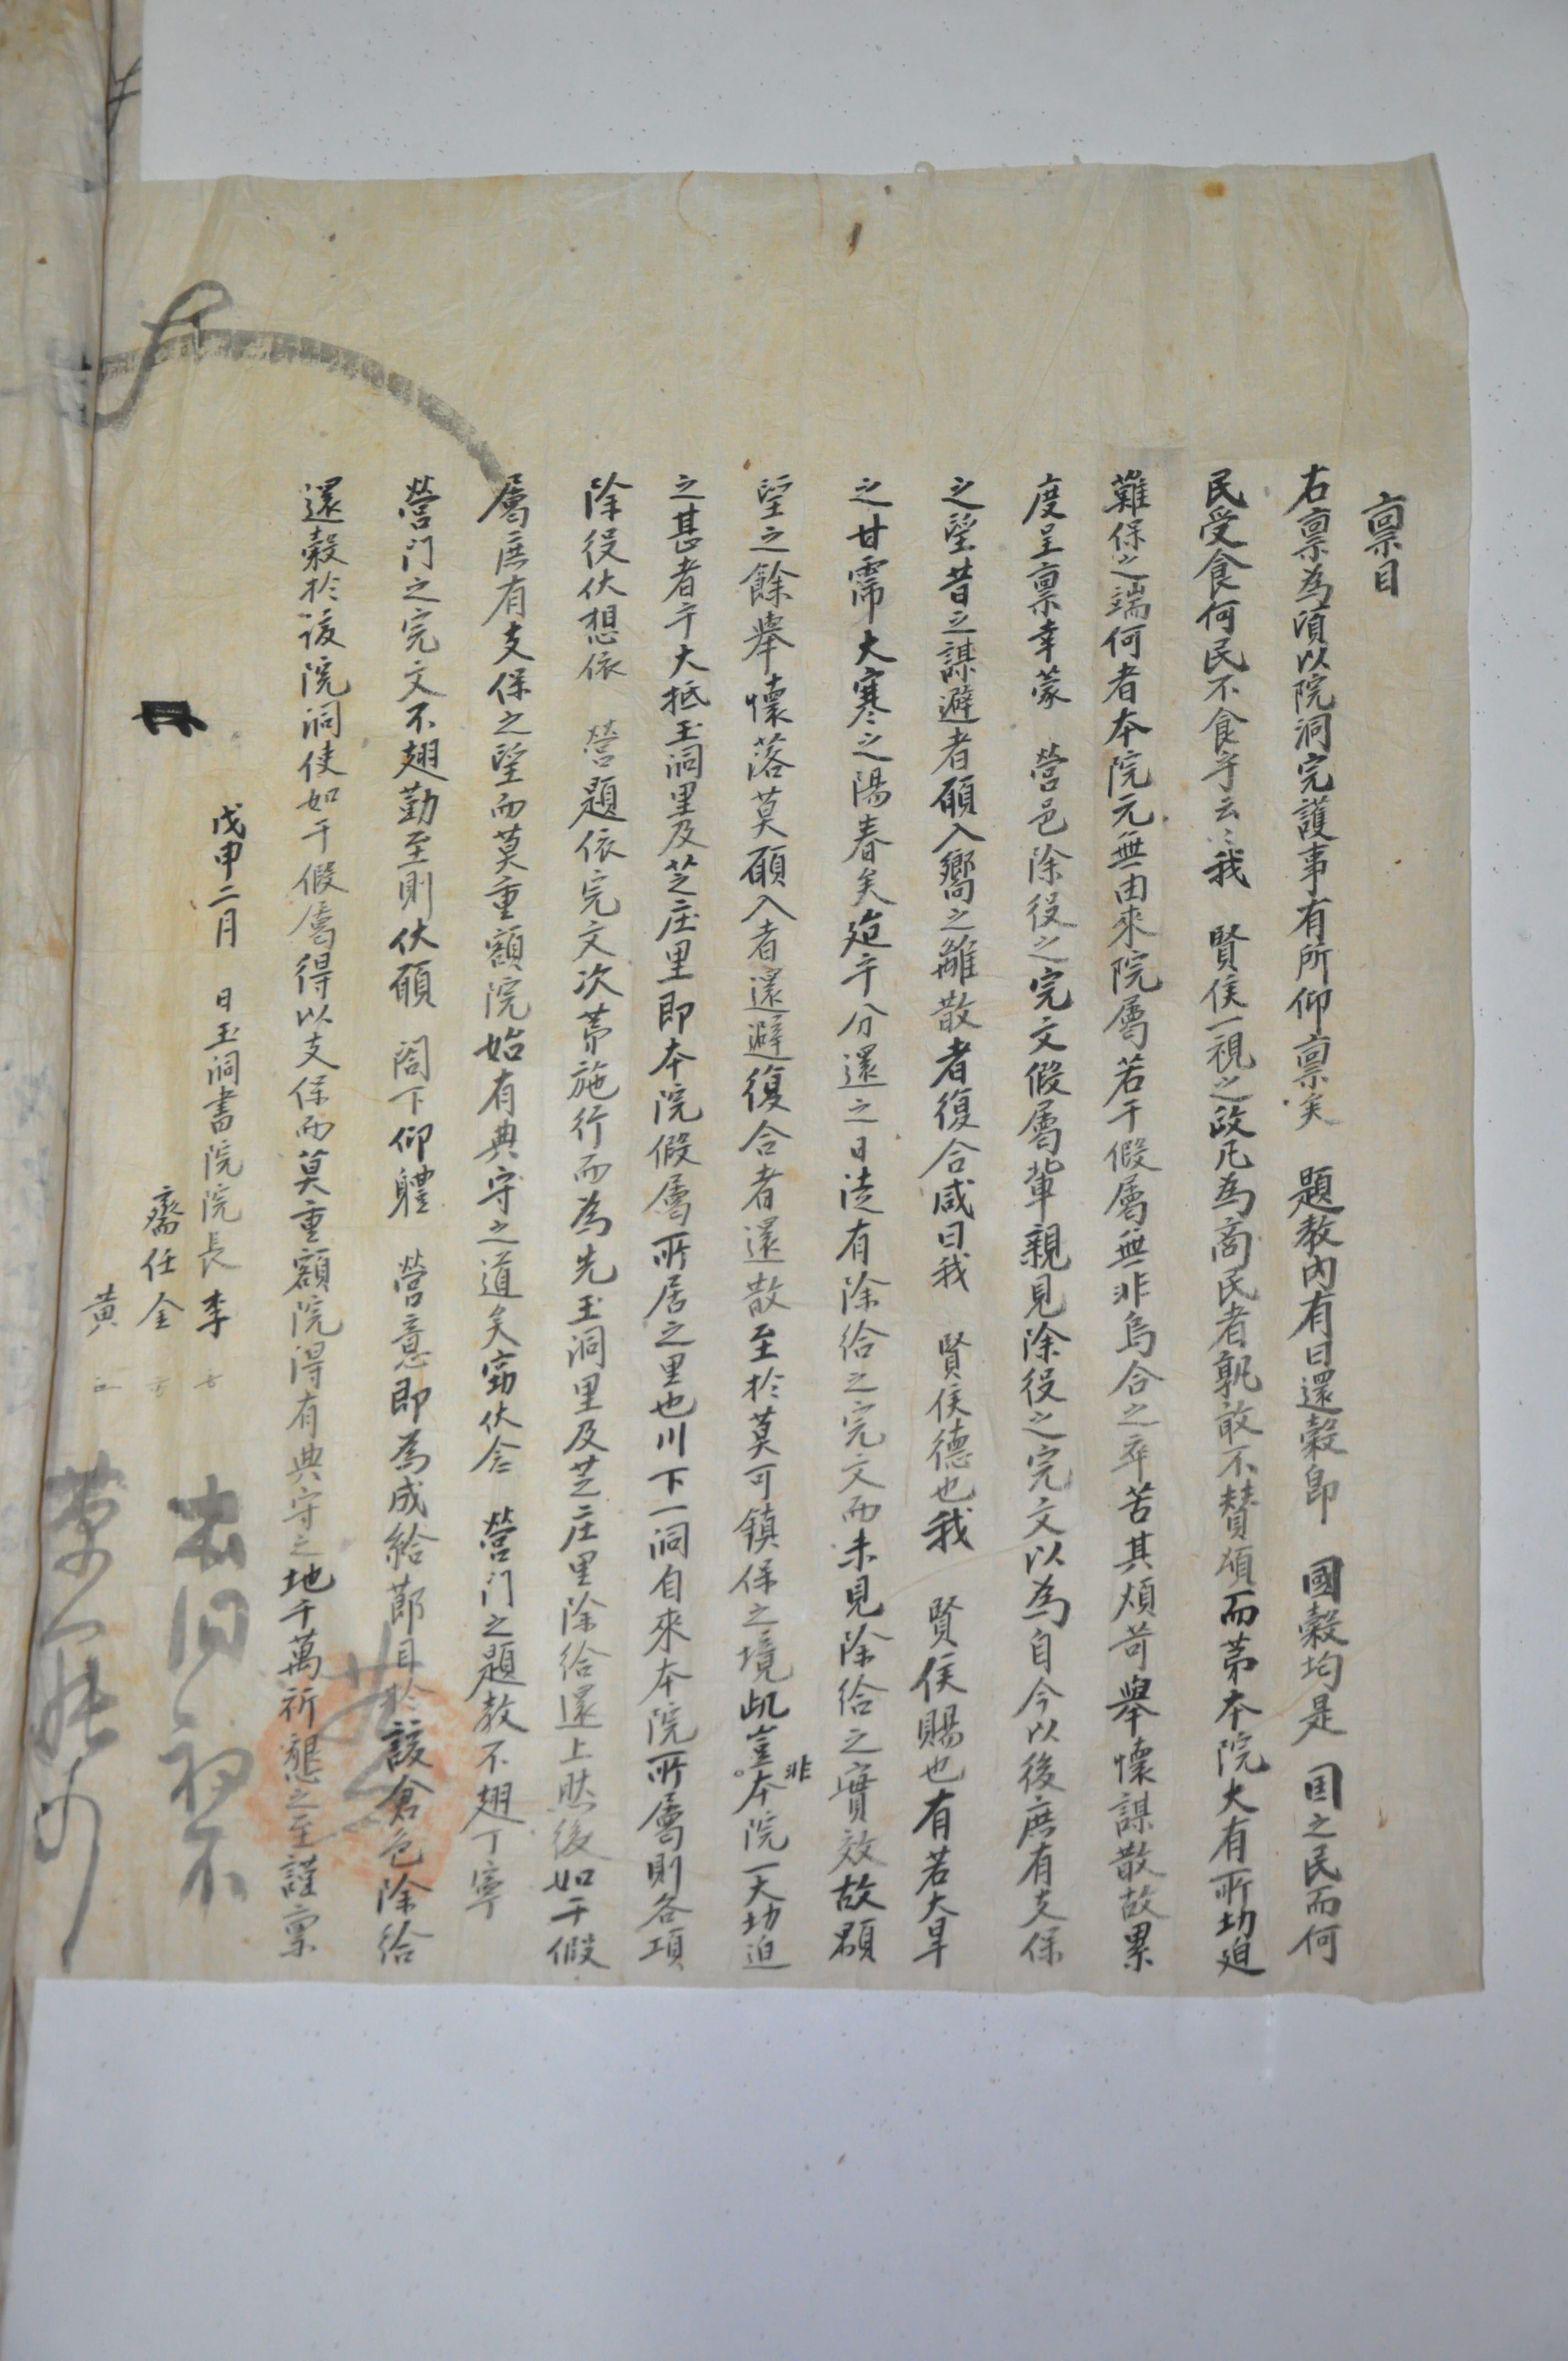 稟目
右稟為頃以院洞完護事有所仰稟矣 題教內有曰還穀卽 國穀均是 国之民而何
民受食何民不食乎云〻我 賢侯一視之政凡為商民者孰敢不賛頌而苐本院大有所切迫
難保之端何者本院元無由來院屬若干假屬無非烏合之卒苦其煩苛舉懷謀散故累
度呈稟幸蒙 營邑除役之完文假屬軰親見除役之完文以為自今以後庶有支保
之望昔之謀避者願入嚮之離散者復合咸曰我 賢侯德也我 賢侯賜也有若大旱
之甘霈大寒之陽春矣迨乎分還之日徒有除給之完文而未見除給之實效故顒
望之餘舉懷落莫願入者還避復合者還散至於莫可鎮保之境此豈非本院一大切迫
之甚者乎大抵玉洞里及芝庄里即本院假屬所居之里也川下一洞自來本院所屬則各項
除役伏想依 營題依完文次苐施行而為先玉洞里及芝庄里除給還上然後如干假
屬庶有支保之望而莫重額院始有典守之道矣窃伏念 營门之題教不翅丁寧
營门之完文不翅勤至則伏願 閤下仰軆 營意即為成給節目於該倉色除給
還穀於该院洞使如干假屬得以支保而莫重額院得有典守之地千萬祈懇之至謹稟
戊申二月 日玉洞書院院長李
齋任金
黄